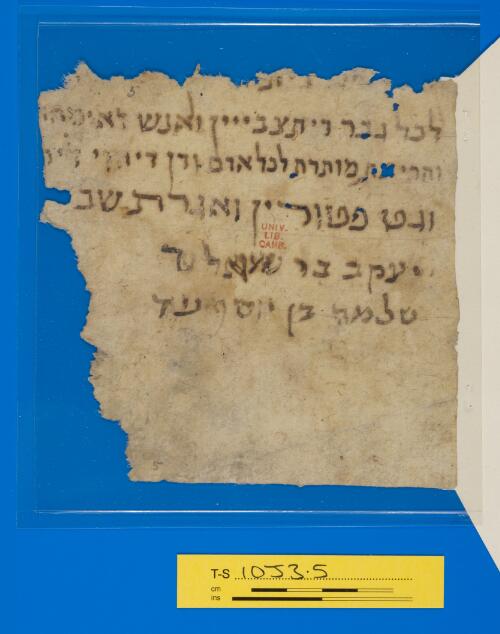 5
לכל גבר דיתצבייין ואנש לא ימחי
והרי את מותרת לכל אדם ודן די
וגט פטורין ואגרת שב
UNIV.
LIB.
CAMB.
יעקב בר שמואל
שלמה בן יוסף עד
5
T-S 10J3.5
cm
ins